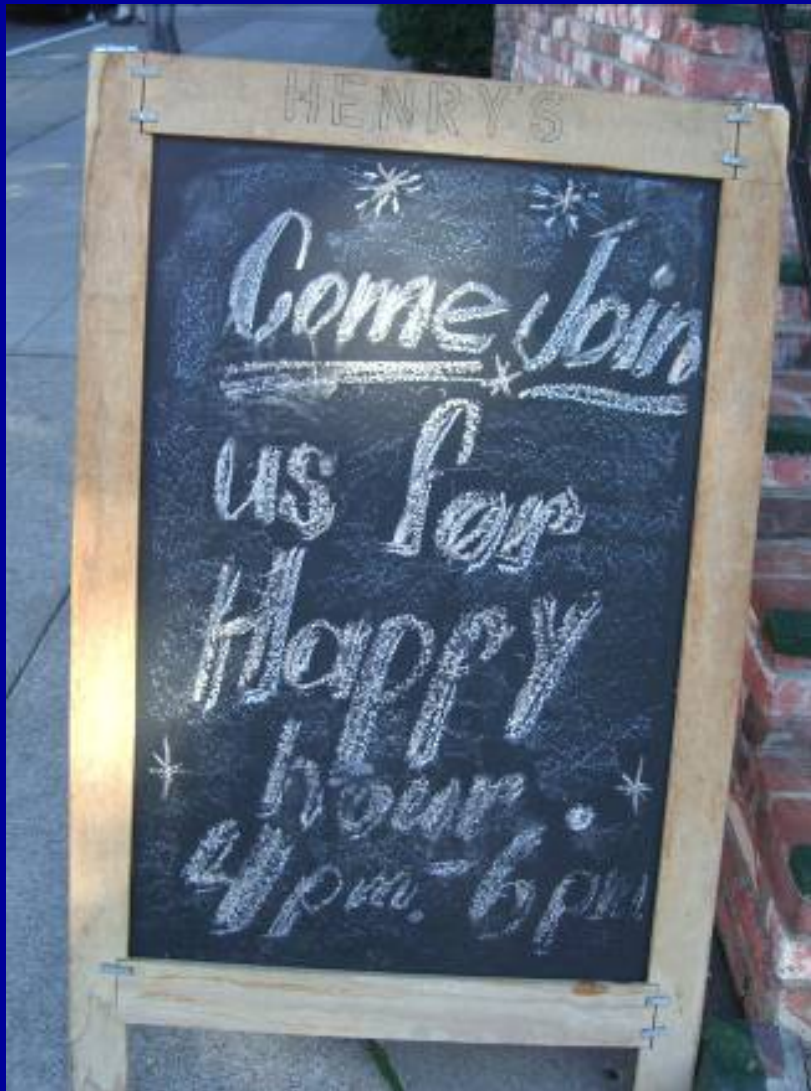 HENRY'S
Come Join
us for
Happy
hour.
4pm.-6pm